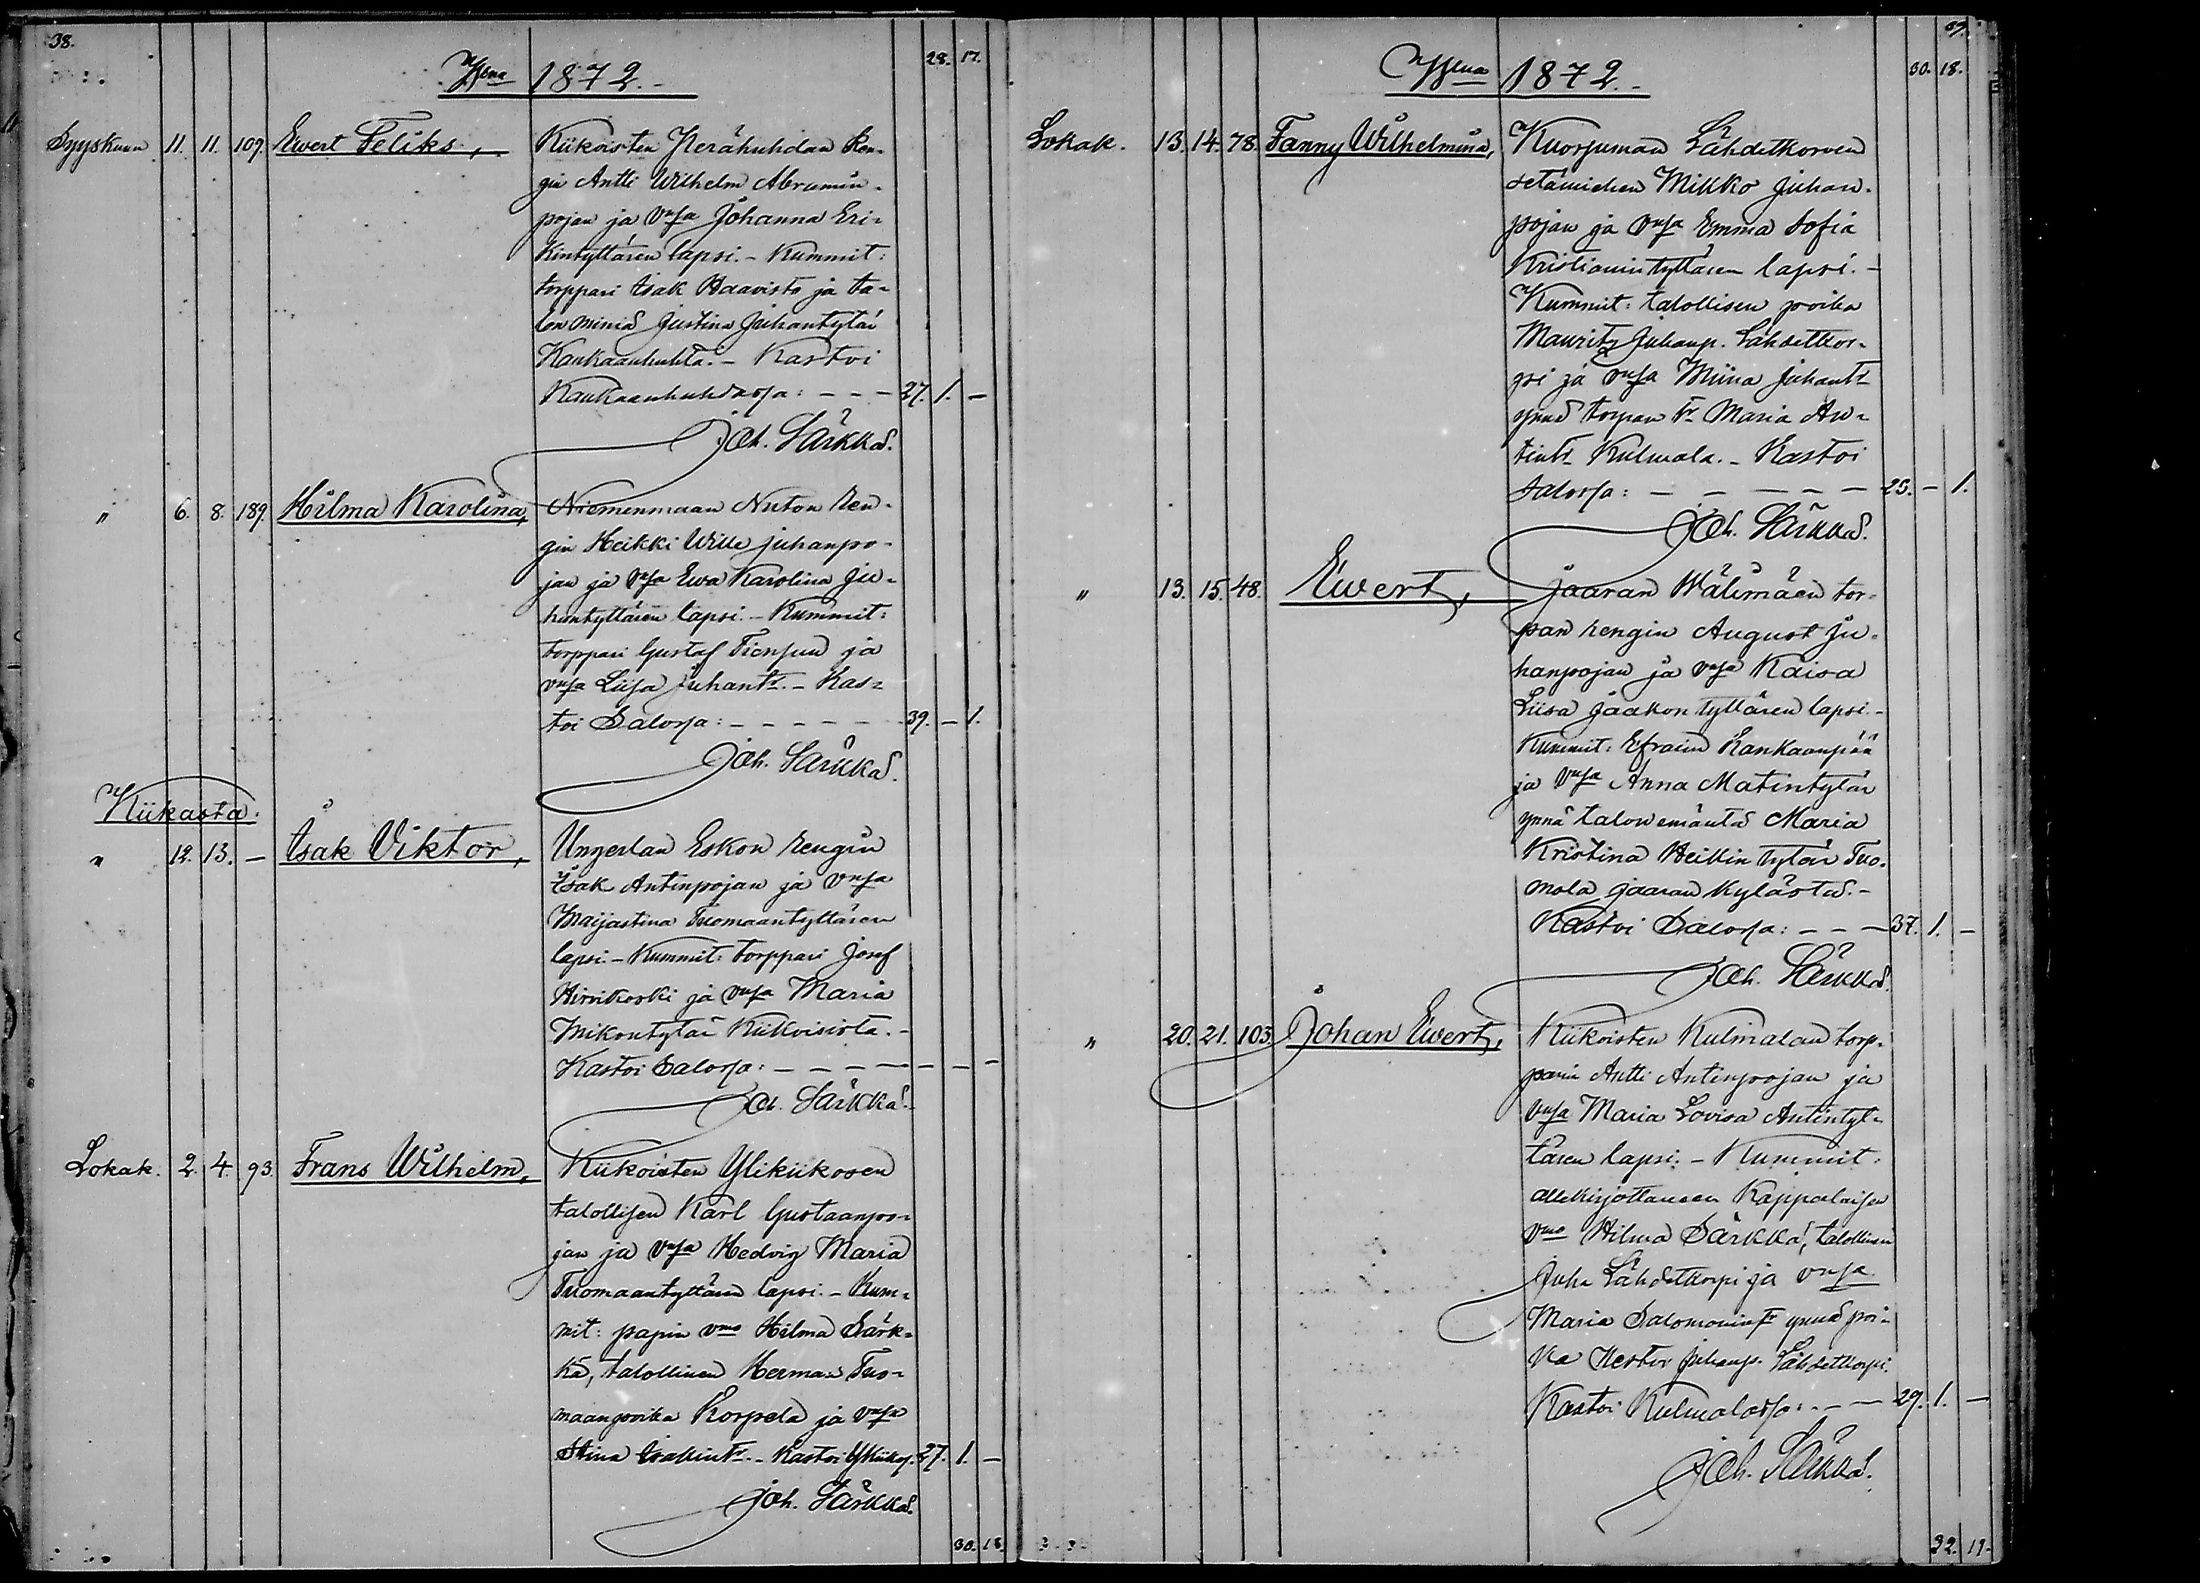 38.
Wna 1872.
28. 17.
Syyskuun 11. 11. 109. Ewert Feliks, Kiikoisten Kerähuhdan Ren-
gin Antti Wilhelm Abramin-
pojan ja vnsa Johanna Eri-
kintyttären lapsi. - Kummit:
torppari Isak Haavisto ja ta-
lon miniä Justina Juhantytär
Kankaanhuhta. - Kastoi
Kankaanhuhdassa: - - - 27. 1. -
Joh. Särkkä.
" 6. 8. 189. Hilma Karolina, Niemenmaan Nuton ren-
gin Heikki Wille Juhanpo-
jan ja vnsa Ewa Karolina Ju-
hantyttären lapsi. - Kummit:
torppari Gustaf Tiensuu ja
vnsa Liisa Juhantr. - Kas-
toi Salossa: - - - - - 39. - 1.
Joh. Särkkä.
Kiikasta.
" 12. 13. - Isak Viktor, Ungerlan Eskon rengin
Isak Antinpojan ja vnsa
Maijastina Tuomaantyttären
lapsi. - Kummit: torppari Josef
Hirvikoski ja vnsa Maria
Mikontytär Kiikoisista. -
Kastoi Salossa: - - - - - - -
Joh. Särkkä.
Lokak. 2. 4. 93. Frans Wilhelm, Kiikoisten Ylikiikosen
talollisen Karl Gustaanpo-
jan ja vnsa Hedvig Maria
Tuomaantyttären lapsi. - Kum-
mit: papin vmo Hilma Särk-
kä, talollinen Herman Tuo-
maanpoika Korpela ja vnsa
Stina Isakintr. - Kastoi Ylikiikos. 27. 1. -
Joh. Särkkä.
30. 18.
39.
Wna 1872.
30. 18.
Lokak. 13. 14. 78. Fanny Wilhelmina, Kuorsuman Lähdetkorven
setämiehen Mikko Juhan-
pojan ja vnsa Emma Sofia
Kristianintyttären lapsi. -
Kummit: talollisen poika
Mauritz Juhanp. Lähdetkor-
pi ja vnsa Miina Juhantr
ynnä torpan tr Maria An-
tintr Kulmala. - Kastoi
Salossa: - - - - - 25. - 1.
Joh. Särkkä.
" 13. 15. 48. Ewert, Jaaran Wälimäen tor-
pan rengin August Ju-
hanpojan ja vnsa Kaisa
Liisa Jaakontyttären lapsi. -
Kummit: Efraim Kankaanpää
ja vnsa Anna Matintytär
ynnä talon emäntä Maria
Kristina Heikintytär Tuo-
mola Jaaran kylästä. -
Kastoi Salossa: - - - 37. 1. -
Joh. Särkkä.
" 20. 21. 103. Johan Ewert, Kiikoisten Kulmalan torp-
parin Antti Antinpojan ja
vnsa Maria Lovisa Antintyt-
tären lapsi. - Kummit:
allekirjottaneen Kappalaisen
vmo Hilma Särkkä, talollinen
Juha Lähdetkorpi ja vnsa
Maria Salomonintr ynnä poi-
ka Nestor Juhanp. Lähdetkorpi.
Kastoi Kulmalassa: - - - 29. 1. -
Joh. Särkkä.
32. 19.